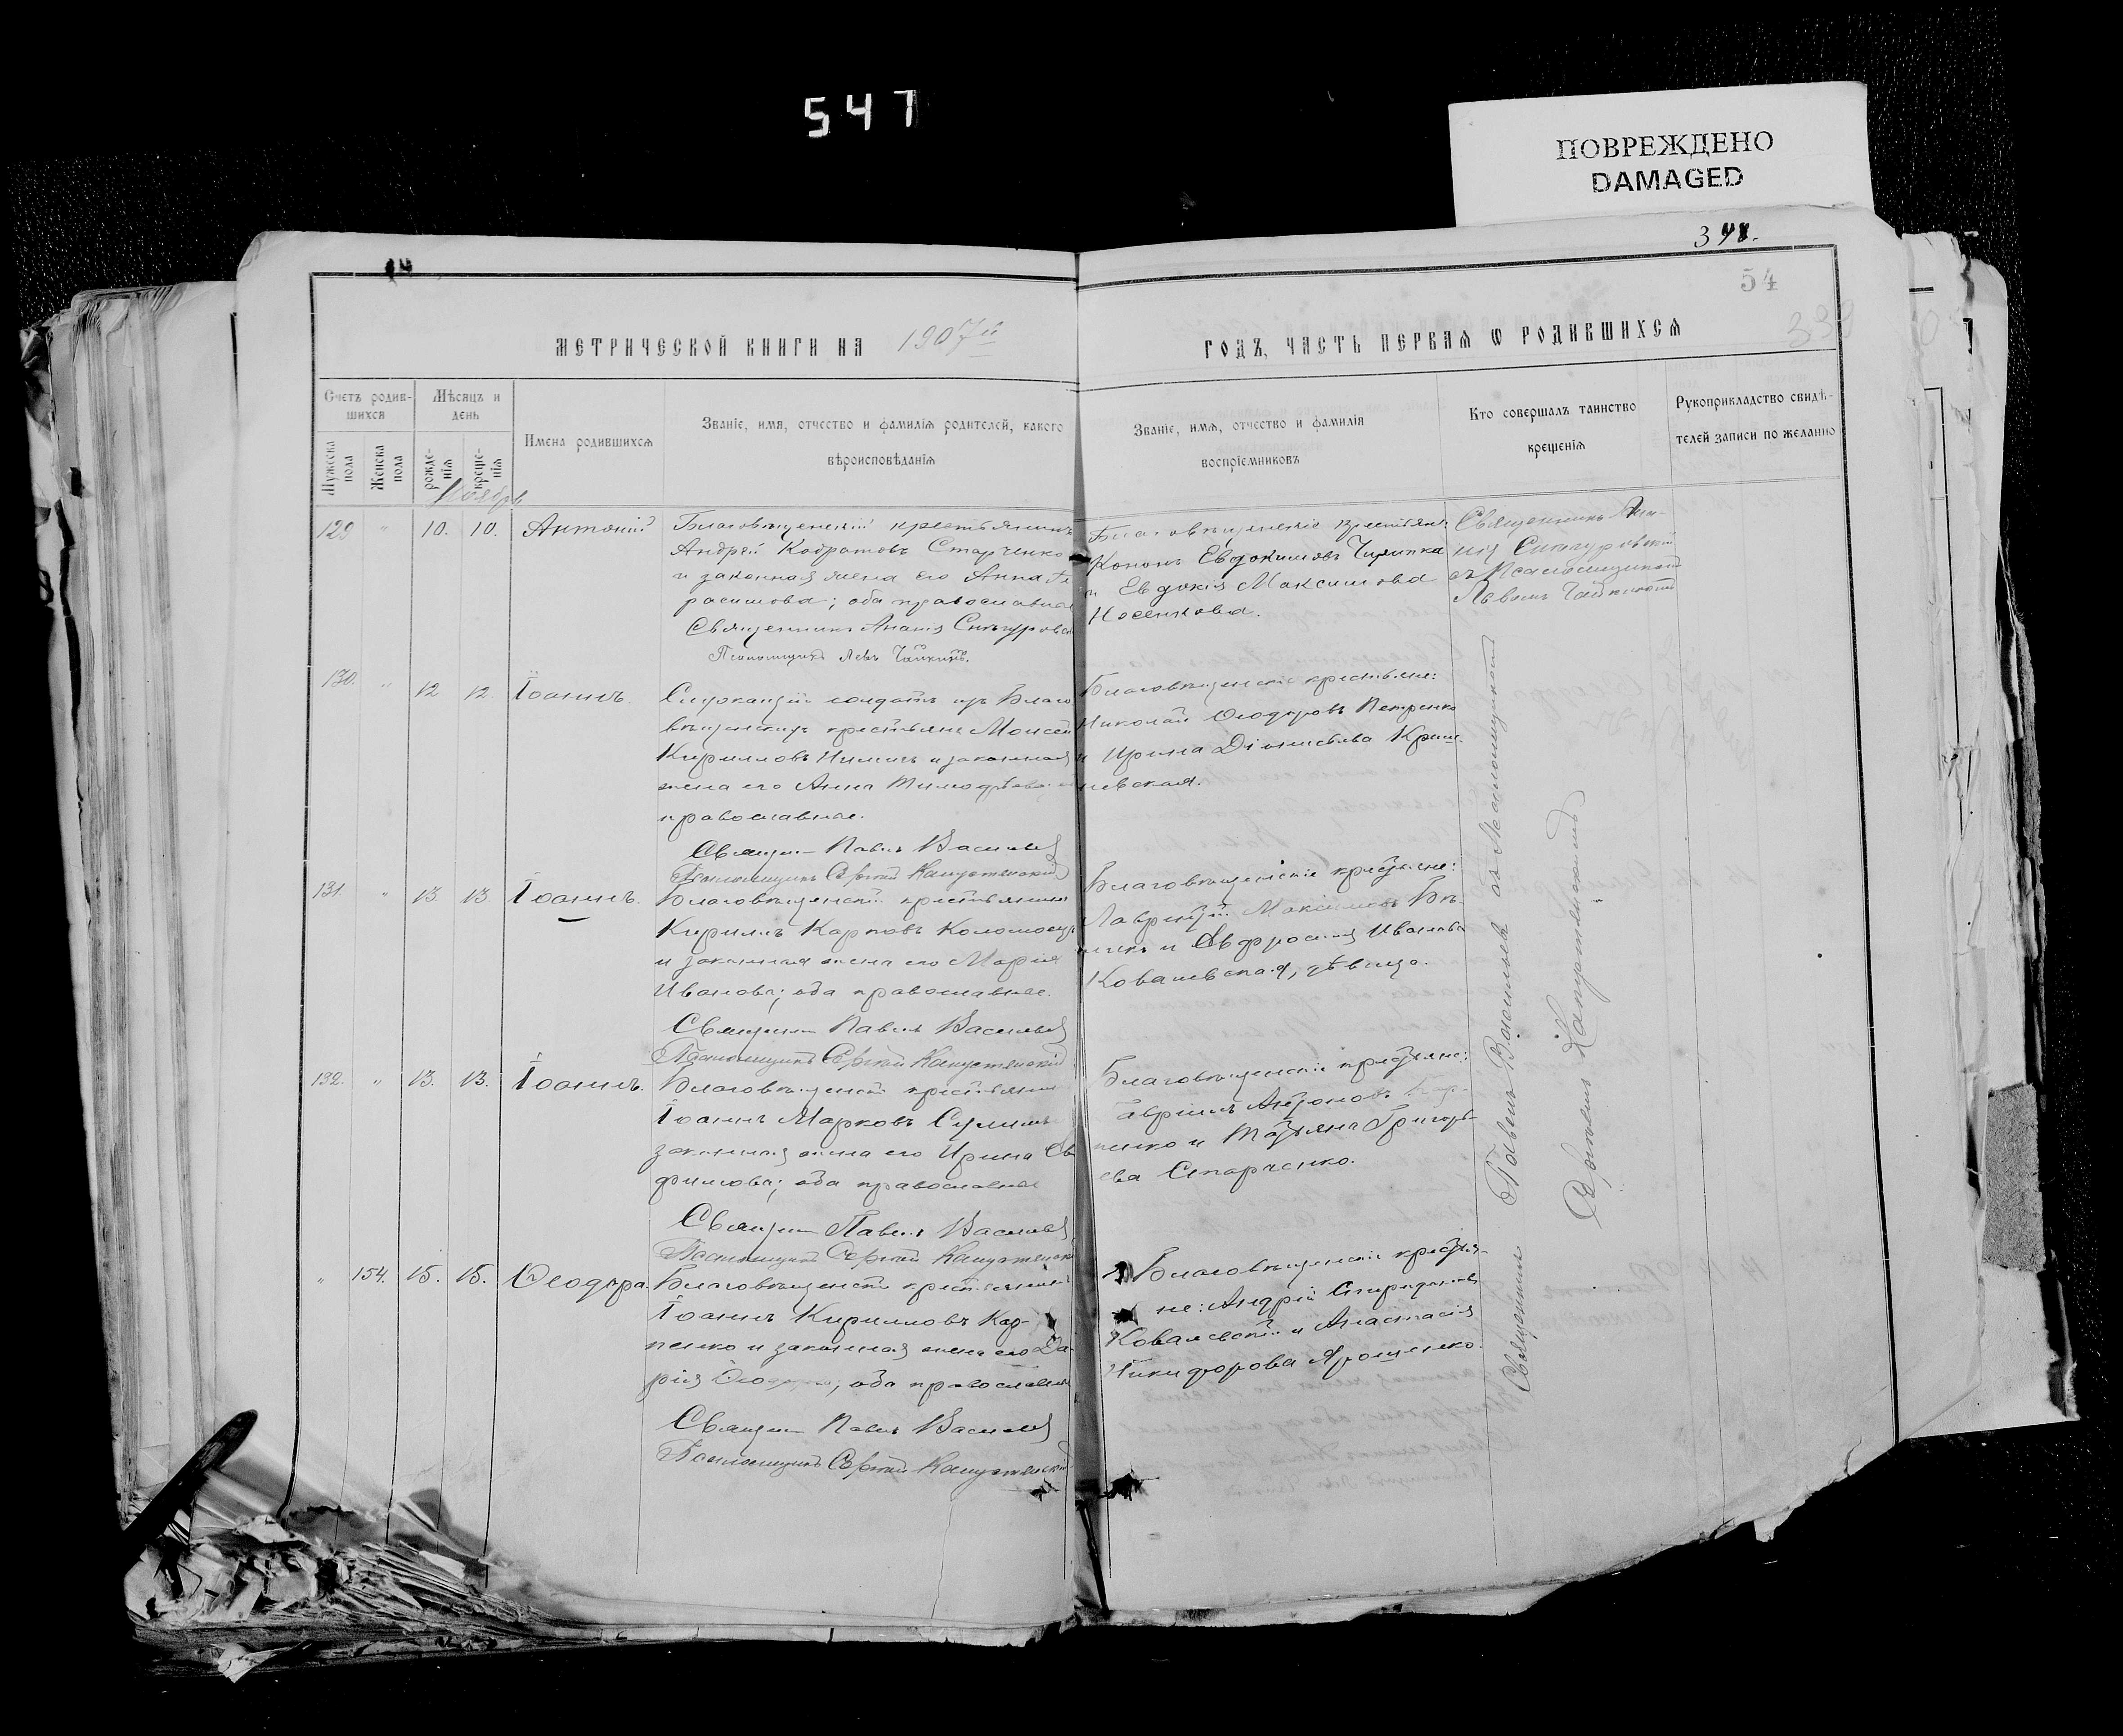 547
ПОВРЕЖДЕНО
DAMAGED
54
МЕТРИЧЕСКОЙ КНИГИ НА 1907й
ГОДЪ, ЧАСТЬ ПЕРВАЯ Ѡ РОДИВШИХСЯ
Счетъ родив-
шихся
Мужеска пола
Женска пола
Мѣсяцъ и
день
рожде-
нія
креще-
нія
Имена родившихся
Званіе, имя, отчество и фамилія родителей, какого
вѣроисповѣданія
Званіе, имя, отчество и фамилія
воспріемниковъ
Кто совершалъ таинство
крещенія
Рукоприкладство свидѣ-
телей записи по желанію
Ноябрь
129 " 10. 10. Антоній
Благовѣщенскій крестьянинъ
Андрей Кодратовъ Старченко
и законная жена его Анна Ге
расимова; оба православные
Священникъ Ананія
Псаломщикъ Левъ
Благовѣщенскіе крестьяне:
Кононъ Евдокимовъ
и Евдокія Максимова
Носенкова.
Священникъ Ана-
нія
съ Псаломщикомъ
Львомъ
130. " 12 12. Іоаннъ
Служащій солдатъ изъ Благо
вѣщенскихъ крестьянъ Моисей
Кирилловъ и законная
жена его Анна Тимофѣева;
православные.
Священ. Павелъ Васильевъ
Псаломщикъ Сергѣй Капустянскій
Благовѣщенскіе крестьяне:
Николай Ѳеодоровъ Петренко
и Ирина Діонисьева
131. " 13. 13 Іоаннъ.
Благовѣщенскій крестьянинъ
Кириллъ Карповъ
и законная жена его Марія
Иванова; оба православные.
Священ. Павелъ Васильевъ
Псаломщикъ Сергѣй Капустянскій
Благовѣщенскіе крестьяне:
Лаврентій Максимовъ
и Евфросинія Иванова
Ковалевская, дѣвица.
132. " 13. 13. Іоаннъ.
Благовѣщенскій крестьянинъ
Іоаннъ Марковъ
законная жена его Ирина Ев
фимова; оба православные
Священ. Павелъ Васильевъ
Псаломщикъ Сергѣй Капустянскій
Благовѣщенскіе крестьяне:
Гавріилъ Антоновъ
и Татьяна Григорь-
ева Старченко.
" 154. 15. 15. Ѳеодора.
Благовѣщенскій крестьянинъ
Іоаннъ Кирилловъ Кар-
пенко и законная жена его Да-
рія; оба православные
Священ. Павелъ Васильевъ
Псаломщикъ Сергѣй Капустянскій
Благовѣщенскіе крестья-
не: Андрей Спиридоновъ
Ковалевскій и Анастасія
Никифорова Ярошенко.
Священникъ Павелъ Васильевъ съ Псаломщикомъ
Сергѣемъ Капустянскимъ